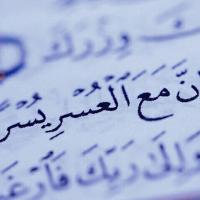 وِزْرَكَ
نَّ مَعَ ٱلْعُسْرِ يُسْرً
وَإِلَىٰ رَبِّكَ فَٱرْغَ